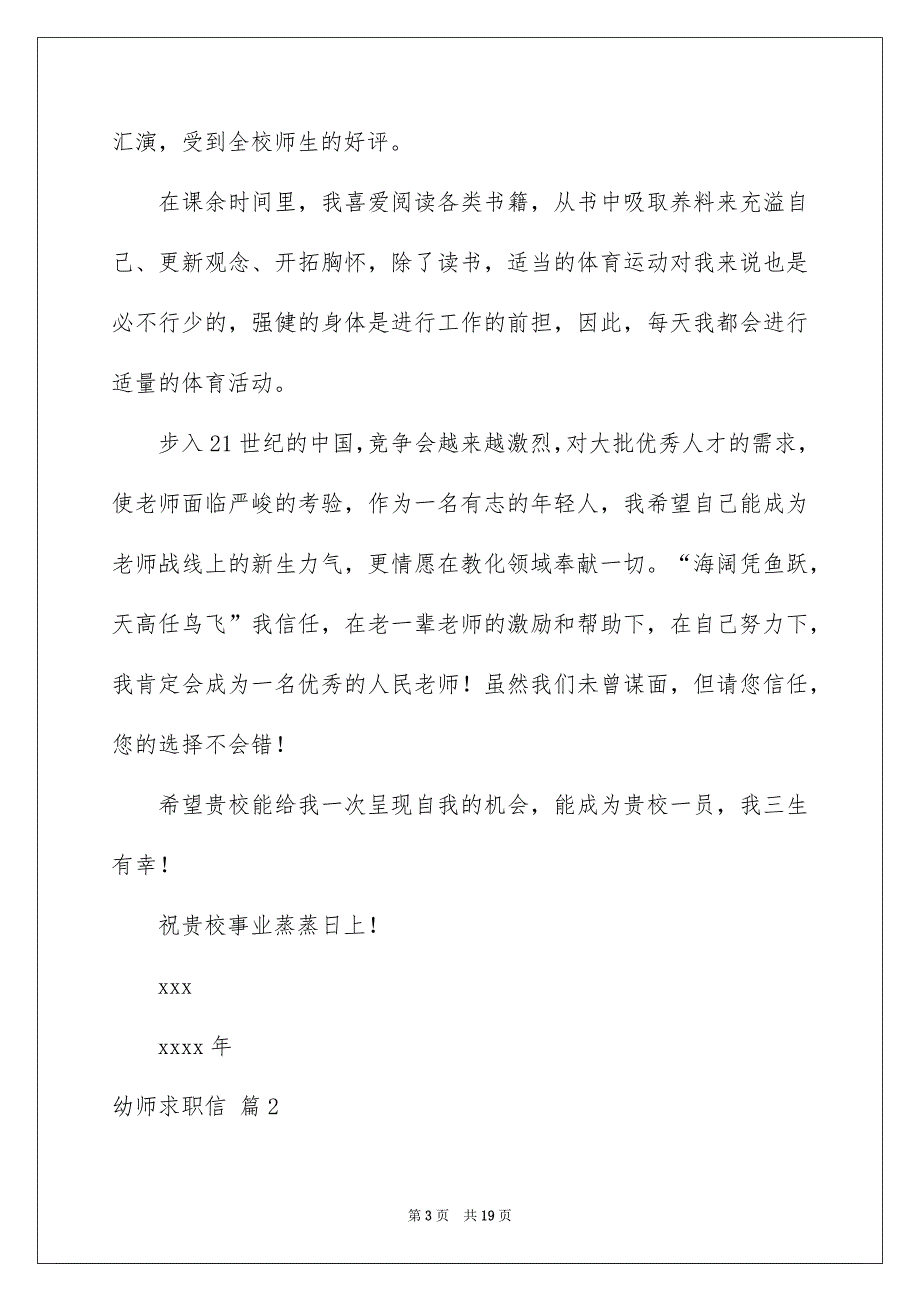 汇演，受到全校师生的好评。
在课余时间里，我喜爱阅读各类书籍，从书中吸取养料来充溢自
己、更新观念、开拓胸怀，除了读书，适当的体育运动对我来说也是
必不行少的，强健的身体是进行工作的前担，因此，每天我都会进行
适量的体育活动。
步入 21 世纪的中国，竞争会越来越激烈，对大批优秀人才的需求，
使老师面临严峻的考验，作为一名有志的年轻人，我希望自己能成为
老师战线上的新生力气，更情愿在教化领域奉献一切。“海阔凭鱼跃，
天高任鸟飞”我信任，在老一辈老师的激励和帮助下，在自己努力下，
我肯定会成为一名优秀的人民老师！虽然我们未曾谋面，但请您信任，
您的选择不会错！
希望贵校能给我一次呈现自我的机会，能成为贵校一员，我三生
有幸！
祝贵校事业蒸蒸日上！
xxx
xxxx 年
幼师求职信 篇 2
第 3 页 共 19 页